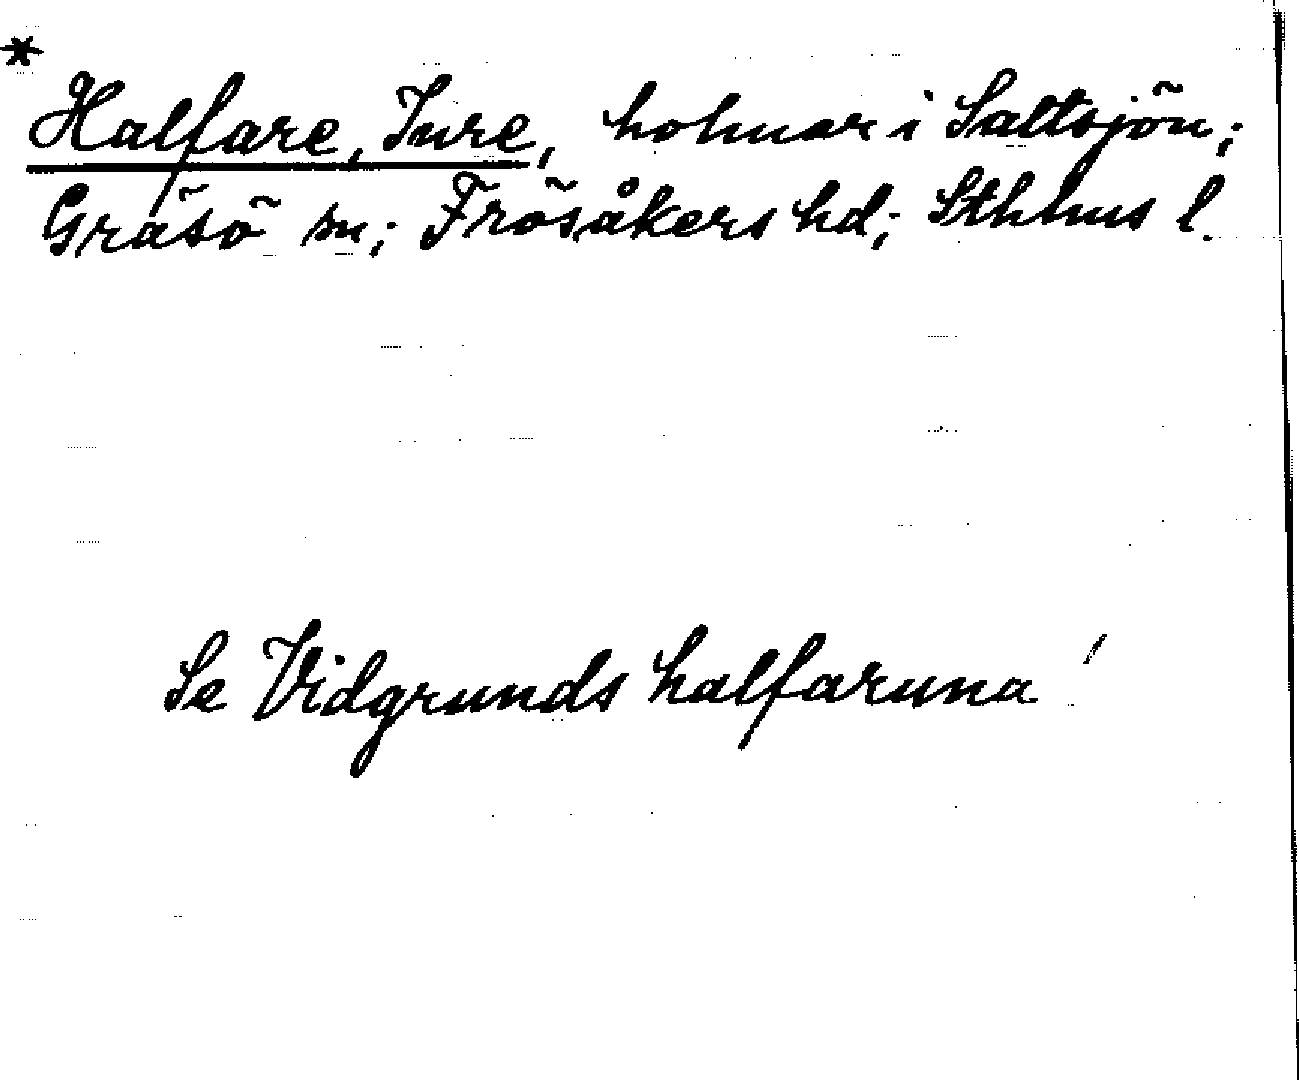 * Halfare, Inre, holmar i Saltsjön;
Gräsö sn; Frösåkers hd; Sthlms l.
Se Vidgrunds halfaruna